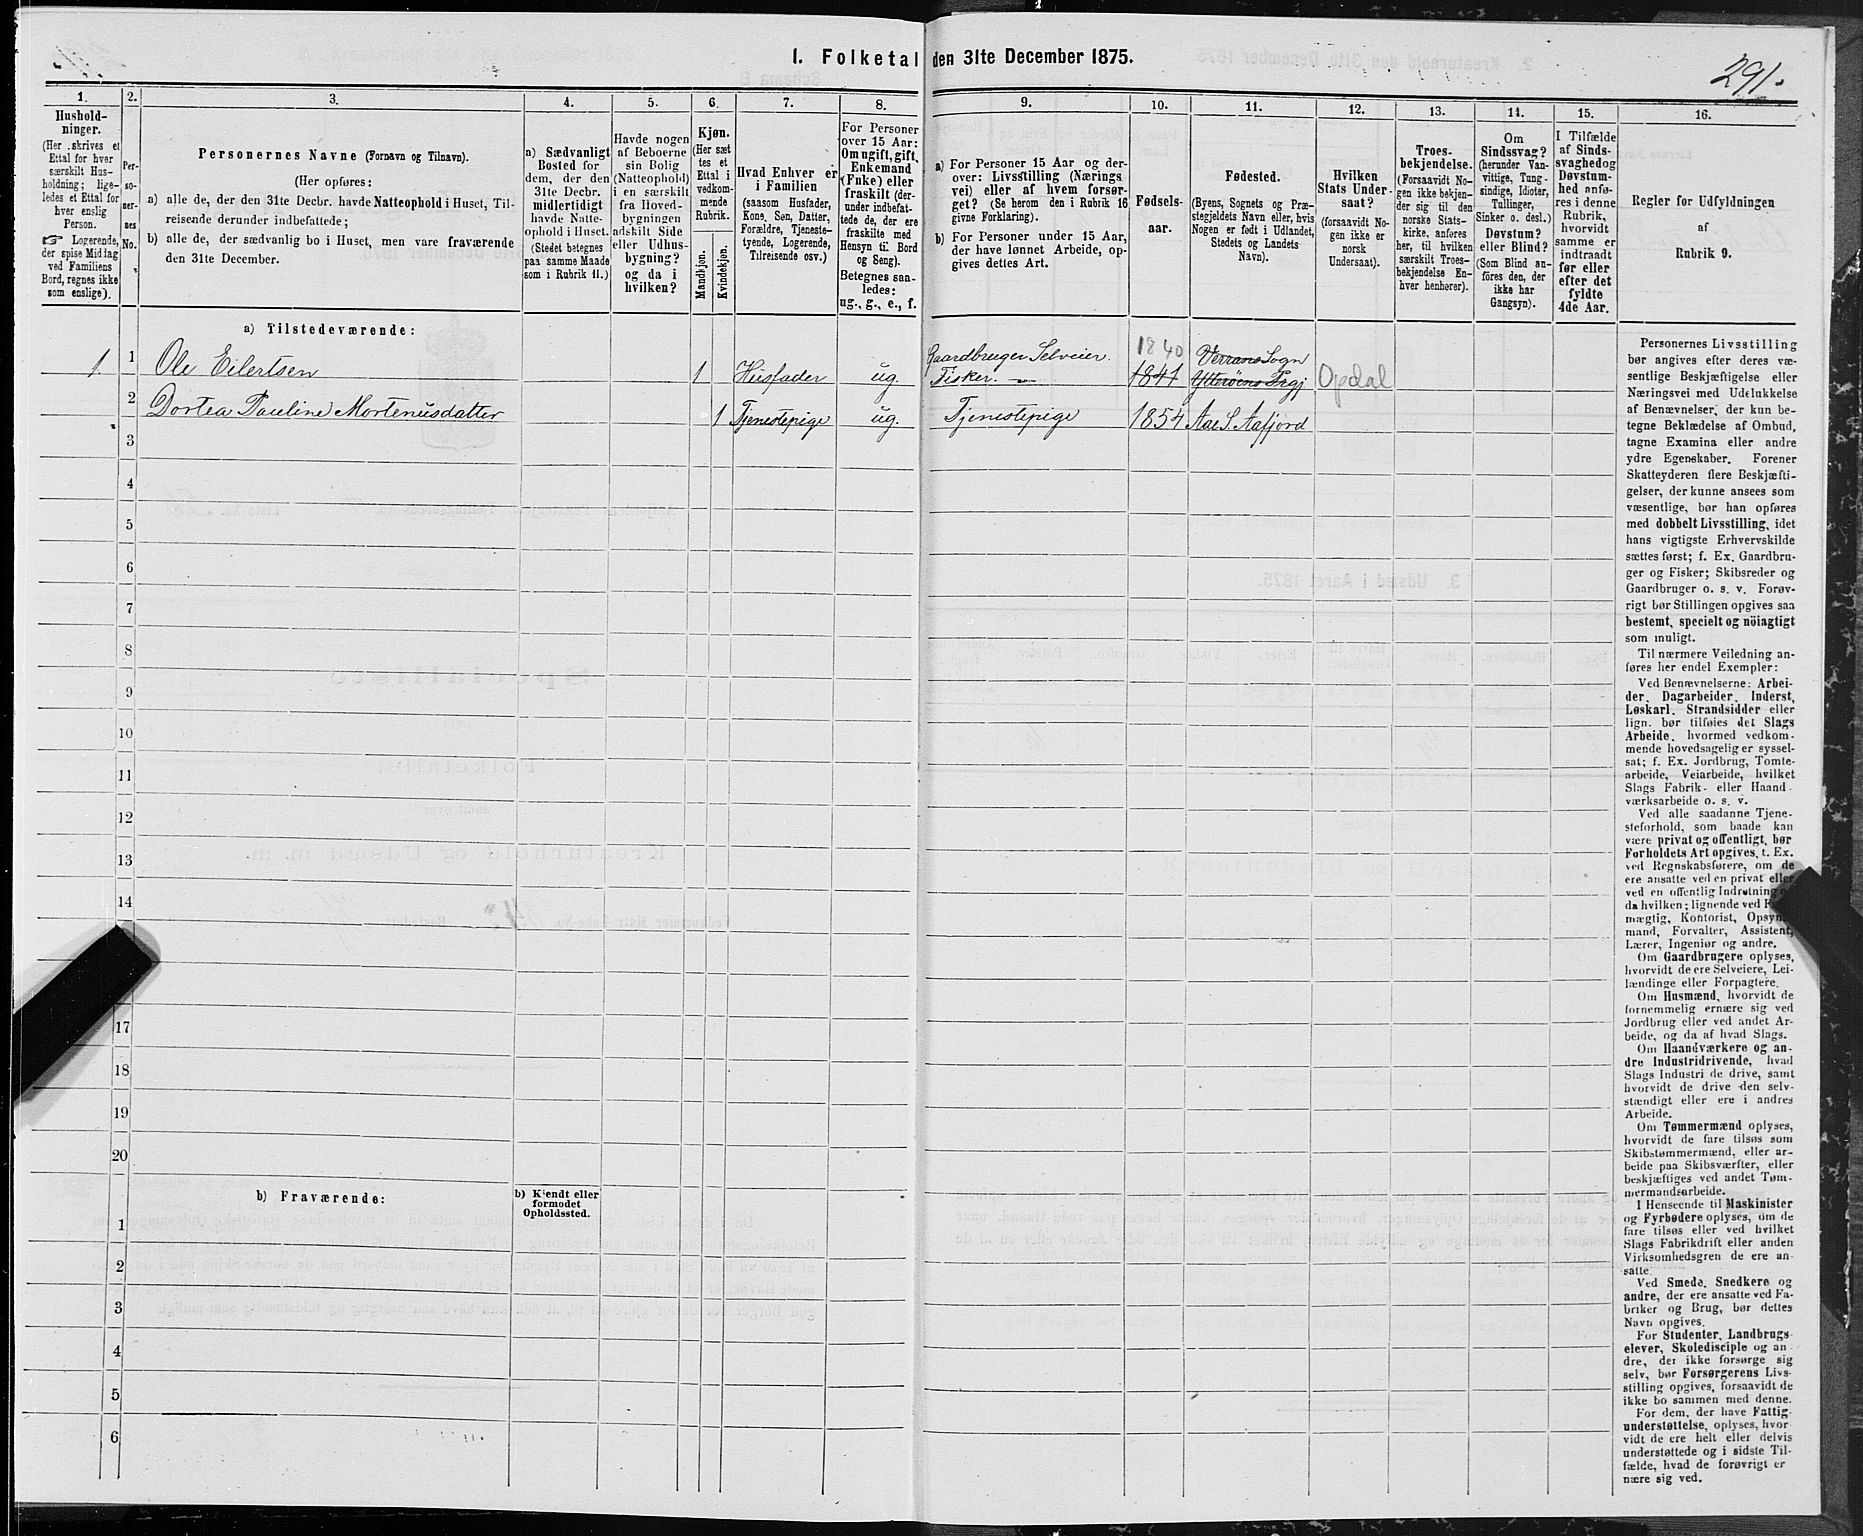 I. Folketal den 31te December 1875.
291.
1.
Hushold-
ninger.
(Her skrives et
Ettal for hver
særskilt Hus-
holdning; lige-
ledes et Ettal for
hver enslig
Person.
☞ Logerende,
der spise Middag
ved Familiens
Bord, regnes ikke
som enslige).
2.
Per-
so-
ner-
nes
No.
3.
Personernes Navne (Fornavn og Tilnavn).
(Her opføres:
a) alle de, der den 31te Decbr. havde Natteophold i Huset, Til-
reisende derunder indbefattede;
b) alle de, der sædvanlig bo i Huset, men vare fraværende
den 31te December.
4.
a) Sædvanligt
Bosted for
dem, der den
31te Decbr.
midlertidigt
havde Natte-
ophold i Huset.
(Stedet betegnes
paa samme Maade
som i Rubrik 11.)
5.
Havde nogen
af Beboerne
sin Bolig
(Natteophold)
i en særskilt
fra Hoved-
bygningen
adskilt Side
eller Udhus-
bygning?
og da i
hvilken?
6.
Kjøn.
(Her sæt
tes et
Ettal i
vedkom-
mende
Rubrik.
Mandkjøn.
Kvindekjøn.
7.
Hvad Enhver er
i Familien
(saasom Husfader,
Kone, Søn, Datter,
Forældre, Tjeneste-
tyende, Logerende,
Tilreisende osv.)
8.
For Personer
over 15 Aar:
Om ugift, gift,
Enkemand
(Enke) eller
fraskilt (der-
under indbefat-
tede de, der ere
fraskilte med
Hensyn til Bord
og Seng).
Betegnes saa-
ledes:
ug., g., e., f.
9.
a) For Personer 15 Aar og der-
over: Livsstilling (Nærings
vei) eller af hvem forsør-
get? (Se herom den i Rubrik 16
givne Forklaring).
b) For Personer under 15 Aar,
der have lønnet Arbeide, op-
gives dettes Art.
10.
Fødsels-
aar.
11.
Fødested.
(Byens, Sognets og Præ-
stegjeldets Navn eller, hvis
Nogen er født i Udlandet,
Stedets og Landets
Navn).
12.
Hvilken
Stats Under-
saat?
(forsaavidt No-
gen ikke er
norsk
Undersaat).
13.
Troes-
bekjendelse.
(Forsaavidt No-
gen ikke bekjen-
der sig til den
norske Stats-
kirke, anføres
her, til hvilken
særskilt Troes-
bekjendelse En-
hver henhører).
14.
Om
Sindssvag?
(herunder Van-
vittige, Tung-
sindige, Idioter,
Tullinger,
Sinker o. desl.)
Døvstum?
eller Blind?
(Som Blind an-
føres den, der
ikke har
Gangsyn).
15.
I Tilfælde
af Sinds-
svaghedog
Døvstum-
hed anfø-
res i denne
Rubrik,
hvorvidt
samme er
indtraadt
før eller
efter det
fyldte
4de Aar.
16.
Regler for Udfyldningen
af
Rubrik 9.
a) Tilstedeværende:
1 1 Ole Eilertsen 1 Husfader ug. Gaardbruger Selveier. Fisker. 1840 1841 Verrans Sogn Ytterøens Prgj Opdal
2 Dortea Pauline Mortenusdatter 1 Tjenestepige ug. Tjenestepige 1854 Aae S. Aafjord
3
4
5
6
7
8
9
10
11
12
13
14
17
18
19
20
b) Fraværende:
b) Kjendt eller
formodet
Opholdssted.
1
2
3
4
5
6
Personernes Livsstilling
bør angives efter deres væ-
sentlige Beskjæftigelse eller
Næringsvei med Udelukkelse
af Benævnelser, der kun be-
tegne Beklædelse af Ombud,
tagne Examina eller andre
ydre Egenskaber. Forener
Skatteyderen flere Beskjæfti-
gelser, der kunne ansees som
væsentlige, bør han opføres
med dobbelt Livsstilling, idet
hans vigtigste Erhvervskilde
sættes først; f. Ex. Gaardbru-
ger og Fisker; Skibsreder og
Gaardbruger o. s. v. Forøv-
rigt bør Stillingen opgives saa
bestemt, specielt og nöiagtigt
som muligt.
Til nærmere Veiledning an-
føres her endel Exempler:
Ved Benævnelserne: Arbei-
der, Dagarbeider, Inderst,
Løskarl, Strandsidder eller
lign. bør tilføies det Slags
Arbeide, hvormed vedkom-
mende hovedsagelig er syssel-
sat; f. Ex. Jordbrug, Tomte-
arbeide, Veiarbeide, hvilket
Slags Fabrik- eller Haand-
værksarbeide o. s. v.
Ved alle saadanne Tjene-
steforhold, som baade kan
være privat og offentligt, bør
Forholdets Art opgives, t. Ex.
ved Regnskabsførere, om de
ere ansatte ved en privat eller
ved en offentlig Indretning
da hvilken; lignende ved
mægtig, Kontorist, Opsyns-
mand, Forvalter, Assistent,
Lærer, Ingeniør og andre.
Om Gaardbrugere oplyses,
hvorvidt de ere Selveiere, Lei-
lændinge eller Forpagtere.
Om Husmænd, hvorvidt de
fornemmelig ernære sig ved
Jordbrug eller ved andet Ar-
beide, og da af hvad Slags.
Om Haandværkere og an-
dre Industridrivende, hvad
Slags Industri de drive, samt
hvorvidt de drive den selv-
stændigt eller ere i andres
Arbeide.
Om Tømmermænd oplyses,
hvorvidt de fare tilsøs som
Skibstømmermænd, eller ar-
beide paa Skibsværfter, eller
beskjæftiges ved andet Tøm-
mermandsarbeide.
I Henseende til Maskinister
og Fyrbødere oplyses, om de
fare tilsøs eller ved hvilket
Slags Fabrikdrift eller anden
Virksomhedsgren de ere an-
satte.
Ved Smede, Snedkere og
andre, der ere ansatte ved Fa-
briker og Brug, bør dettes
Navn opgives.
For Studenter, Landbrugs-
elever, Skoledisciple og an
dre, der ikke forsørge sig
selv, bør Forsørgerens Livs-
stilling opgives, forsaavidt de
ikke bo sammen med denne.
For dem, der have Fattig-
understøttelse, oplyses, hvor-
vidt de ere helt eller delvis
understøttede og i sidste Til-
fælde, hvad de forøvrigt er
nære sig ved.